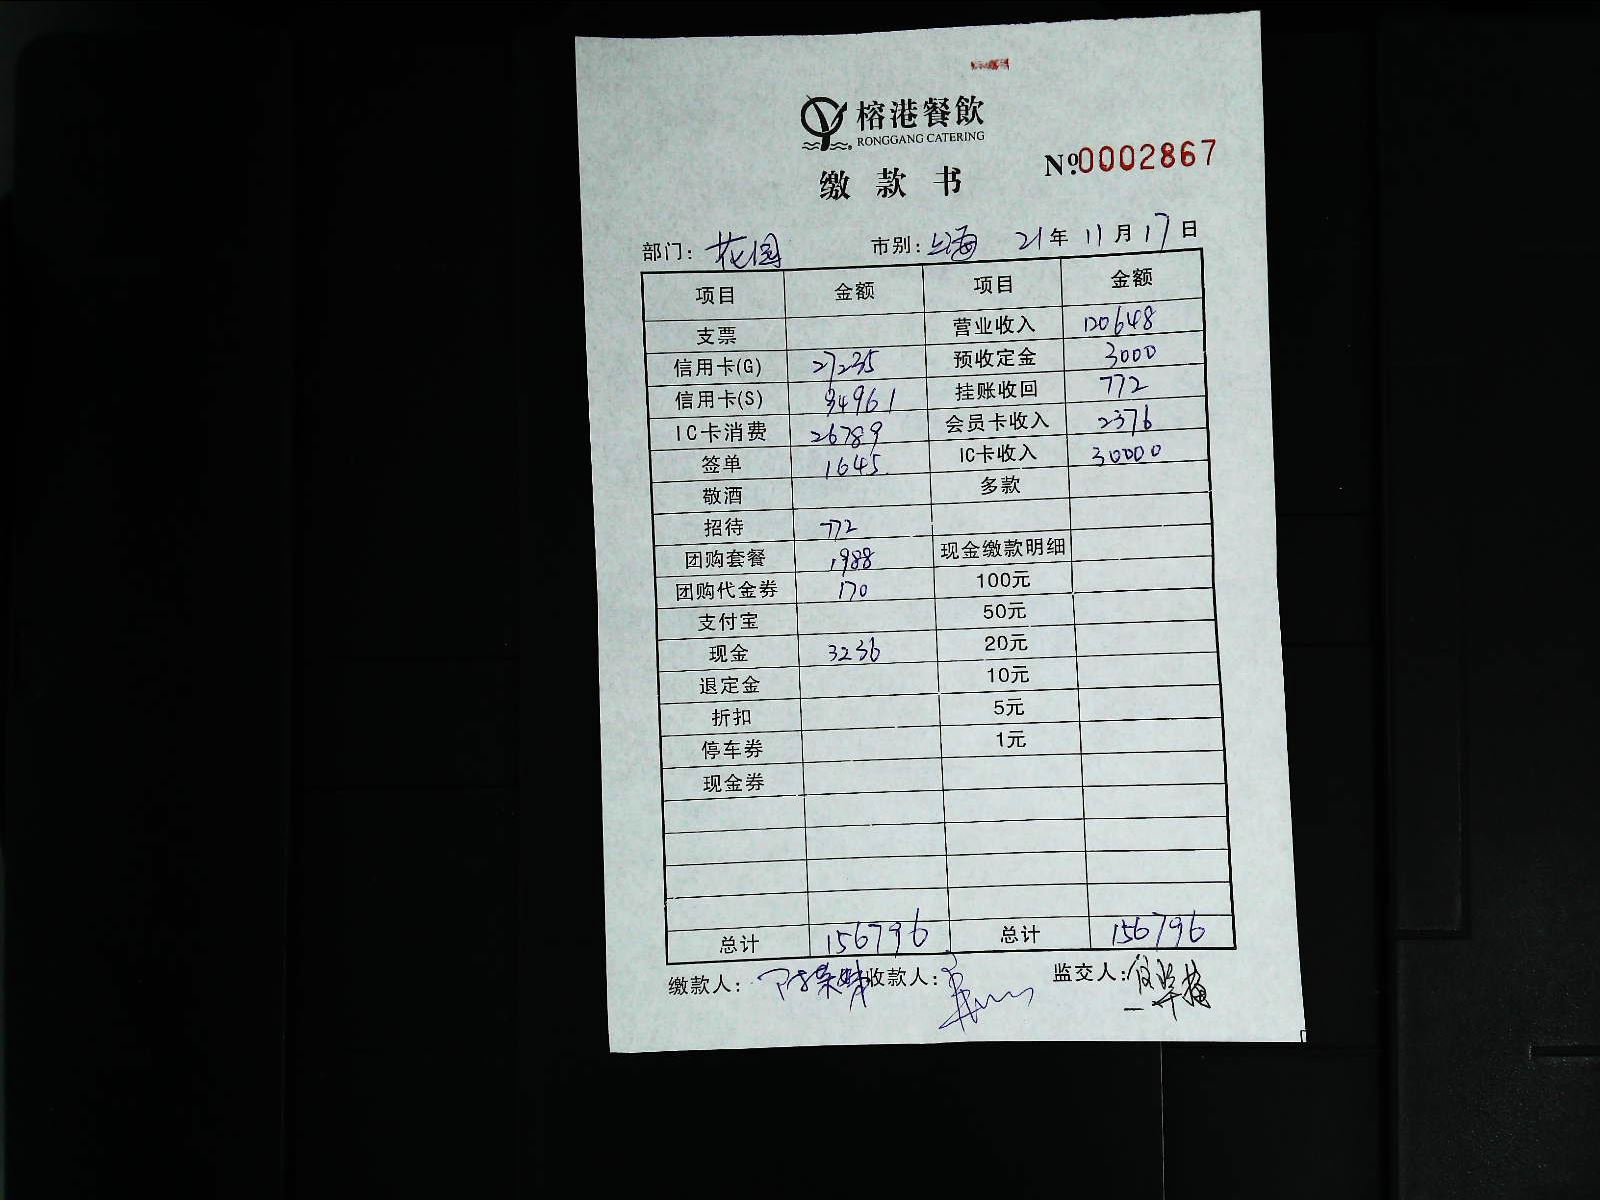 榕港餐飲
RONGGANG CATERING
缴款书
№0002867
部门: 花园 市别: 上海 21年11月17日
项目 金额 项目 金额
支票 营业收入 120648
信用卡(G) 27235 预收定金 3000
信用卡(S) 94961 挂账收回 772
IC卡消费 26789 会员卡收入 2376
签单 1645 IC卡收入 30000
敬酒 多款
招待 772
团购套餐 1988 现金缴款明细
团购代金券 170 100元
支付宝 50元
现金 3236 20元
退定金 10元
折扣 5元
停车券 1元
现金券
总计 156796 总计 156796
缴款人: 收款人: 监交人: